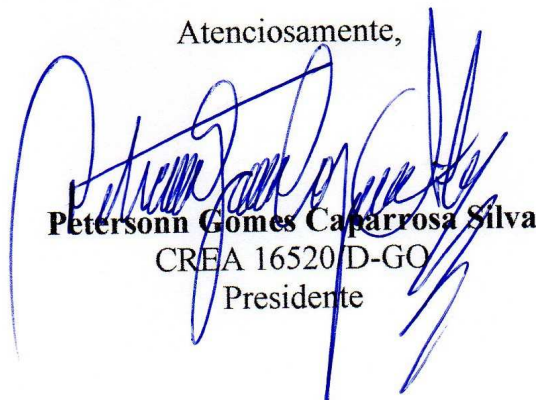 Atenciosamente,
Petersonn Gomes Caparrosa Silva
CREA 16520/D-GO
Presidente